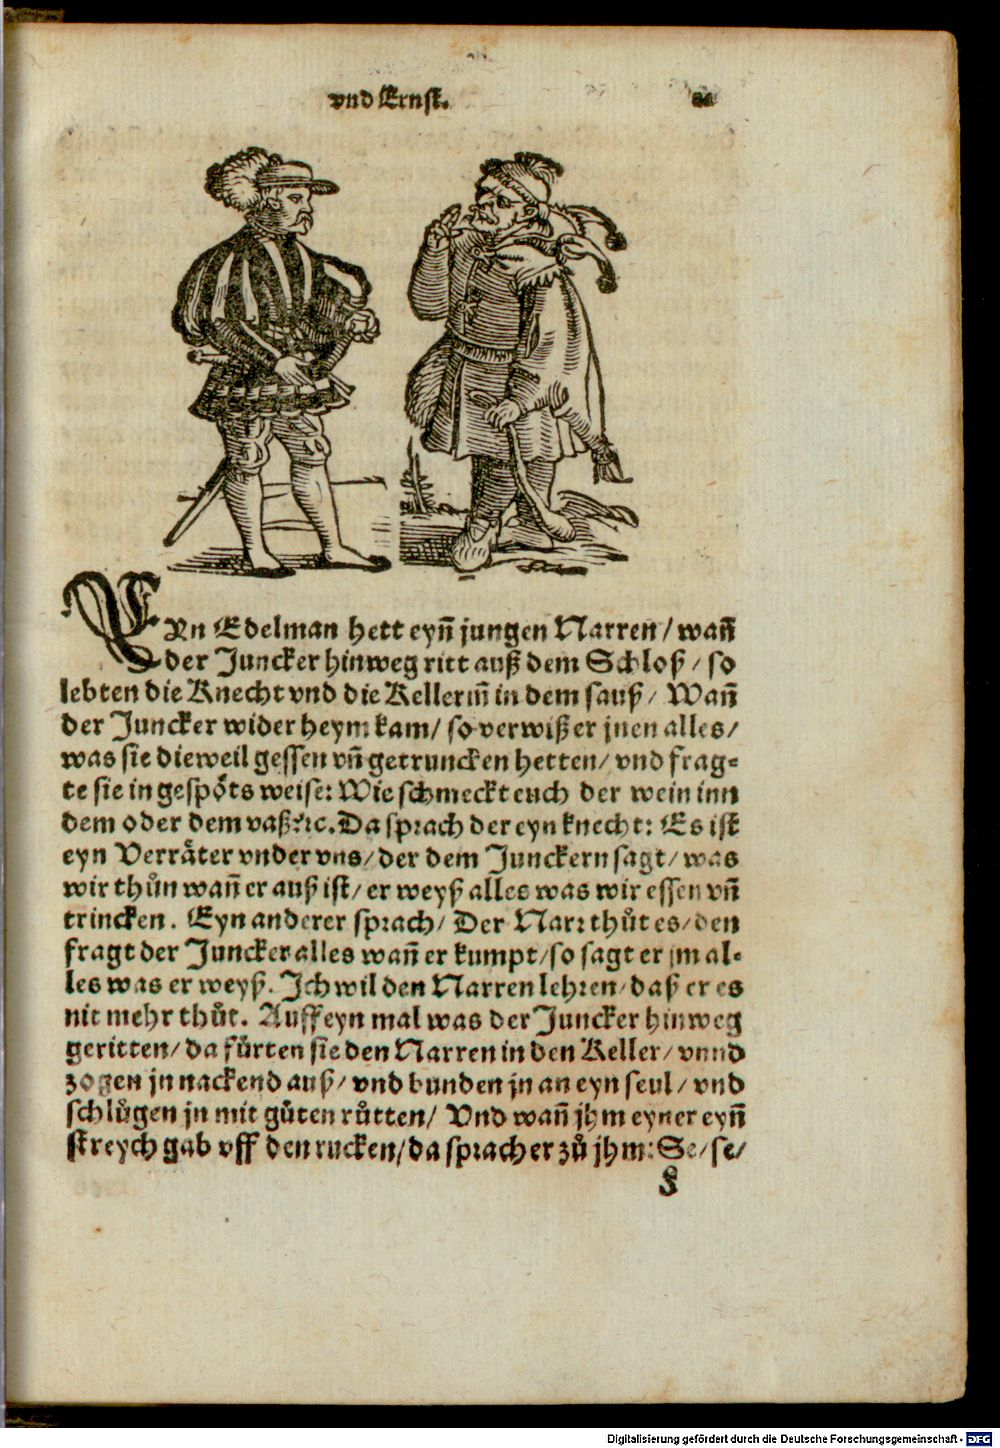 vnd Ernst.
EYn Edelman hett eyn̄ jungen Narren / wan̄
der Juncker hinweg ritt auß dem Schloß / so
lebten die Knecht vnd die Kellerin̄ in dem sauß / Wan̄
der Juncker wider heym kam / so verwiß er jnen alles /
was sie dieweil gessen vn̄ getruncken hetten / vnd frag⸗
te sie in gespoͤts weise: Wie schmeckt euch der wein inn
dem oder dem vaß ꝛc. Da sprach der eyn knecht: Es ist
eyn Verraͤter vnder vns / der dem Junckern sagt / was
wir thuͦn wan̄ er auß ist / er weyß alles was wir essen vn̄
trincken. Eyn anderer sprach / Der Narr thuͦt es / den
fragt der Juncker alles wan̄ er kumpt / so sagt er jm al⸗
les was er weyß. Ich wil den Narren lehren / daß er es
nit mehr thuͦt. Auff eyn mal was der Juncker hinweg
geritten / da fuͤrten sie den Narren in den Keller / vnnd
zogen jn nackend auß / vnd bunden jn an eyn seul / vnd
schluͦgen jn mit guͦten ruͦtten / Vnd wan̄ jhm eyner eyn̄
streych gab vff den rucken / da sprach er zuͦ jhm: Se / se /
Digitalisierung gefördert durch die Deutsche Forschungsgemeinschaft - DFG